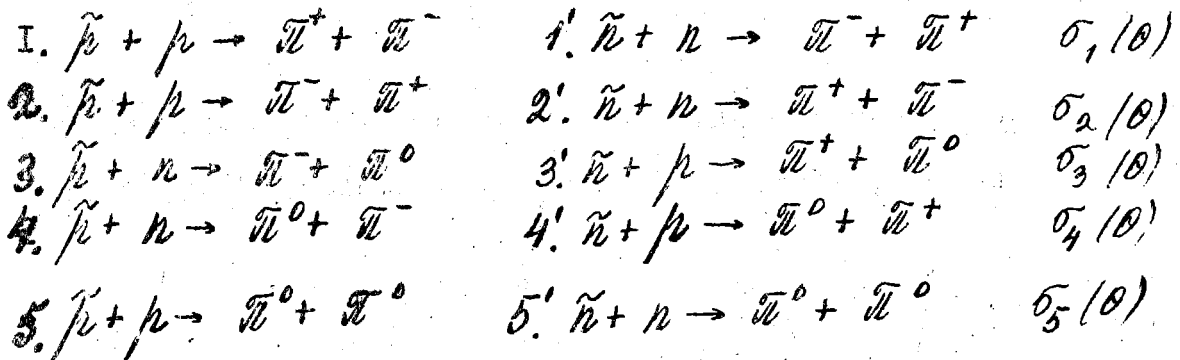 I. p̃ + p → π⁺ + π⁻ 1'. ñ + n → π⁻ + π⁺ σ₁(θ)
2. p̃ + p → π⁻ + π⁺ 2'. ñ + n → π⁺ + π⁻ σ₂(θ)
3. p̃ + n → π⁻ + π⁰ 3'. ñ + p → π⁺ + π⁰ σ₃(θ)
4. p̃ + n → π⁰ + π⁻ 4'. ñ + p → π⁰ + π⁺ σ₄(θ)
5. p̃ + p → π⁰ + π⁰ 5'. ñ + n → π⁰ + π⁰ σ₅(θ)